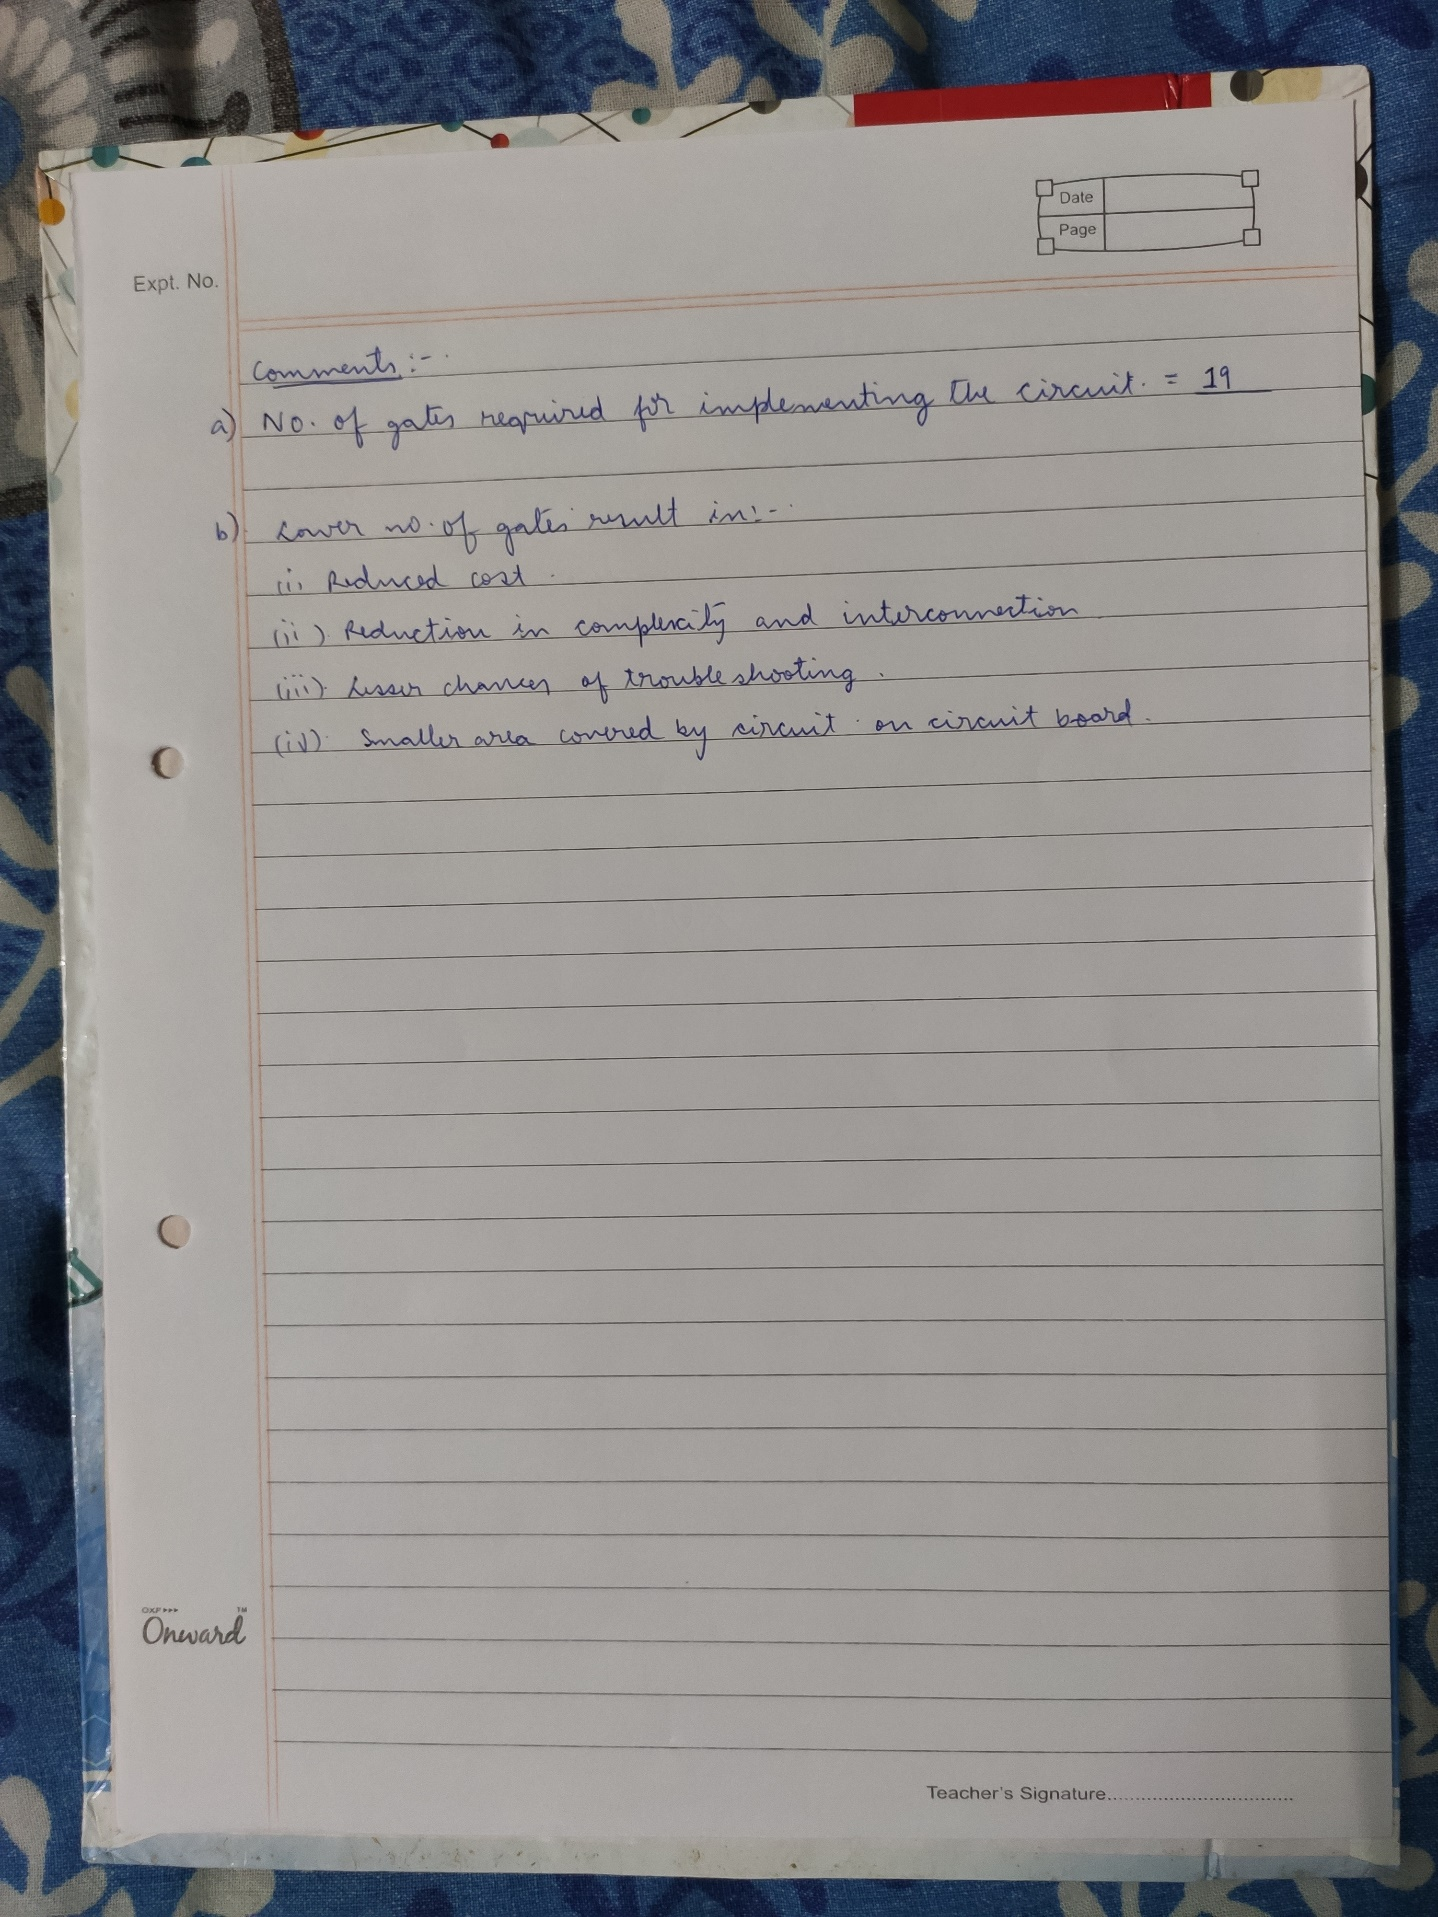 Date
Page
Expt. No.
Comments :-
a) No. of gates required for implementing the circuit. = 19
b) Lower no. of gates result in:-
(i) Reduced cost.
(ii) Reduction in complexity and interconnection
(iii) Lesser chances of troubleshooting.
(iv) Smaller area covered by circuit on circuit board.
OXF
Onward TM
Teacher's Signature